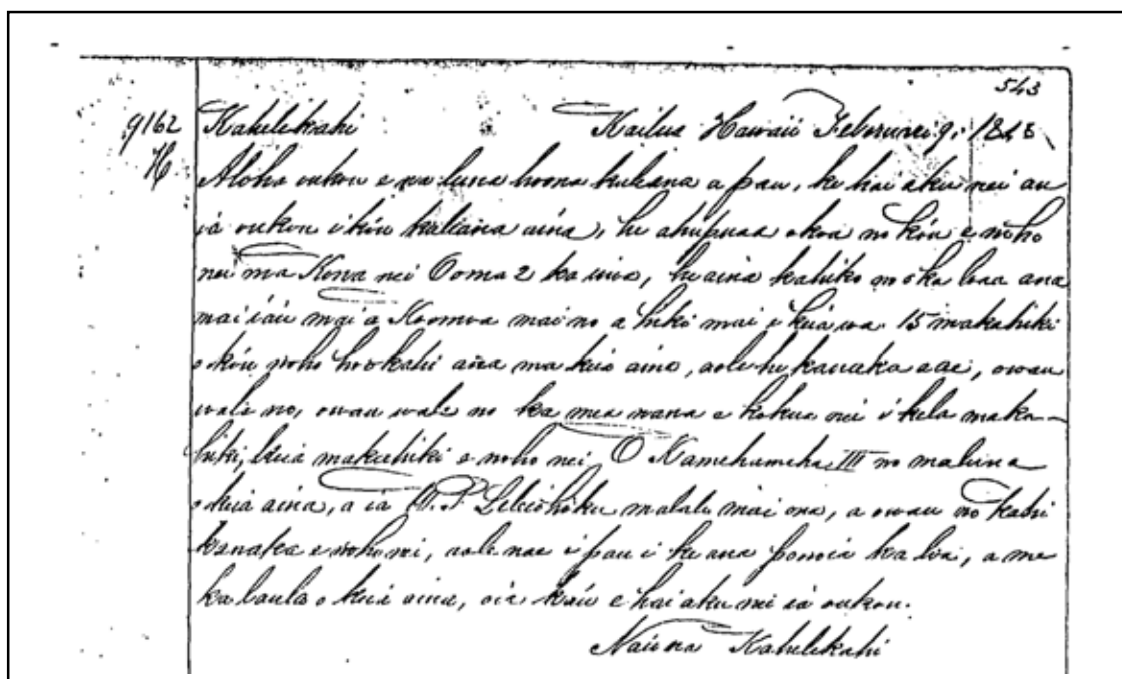 543
9162 Kahelekahi Kailua Hawaii Feberuari 9, 1848
H Aloha oukou e na luna hoona kuleana a pau, ke hai aku nei au
ia oukou i ko'u kuleana aina, he ahupuaa okoa no ko'u e noho
nei ma Kona nei Ooma 2 ka inoa, he aina kahiko no o ka loaa ana
mai ia'u mai a Koomoa mai no a hiki mai i keia wa 15 makahiki
o ko'u noho hookahi ana ma keia aina, aole he kanaka e ae, owau
wale no, owau wale no ka mea nana e kokua nei i kela maka-
hiki, keia makahiki e noho nei. O Kamehameha III no maluna
o keia aina, a ia W. P. Leleiohoku malalo mai ona, a owau no kahi
kanaka e noho nei, aole nae i pau i ke ana ponoia ka loa, a me
ka laula o keia aina, oia ka'u e hai aku nei ia oukou.
Na'u na Kahelekahi